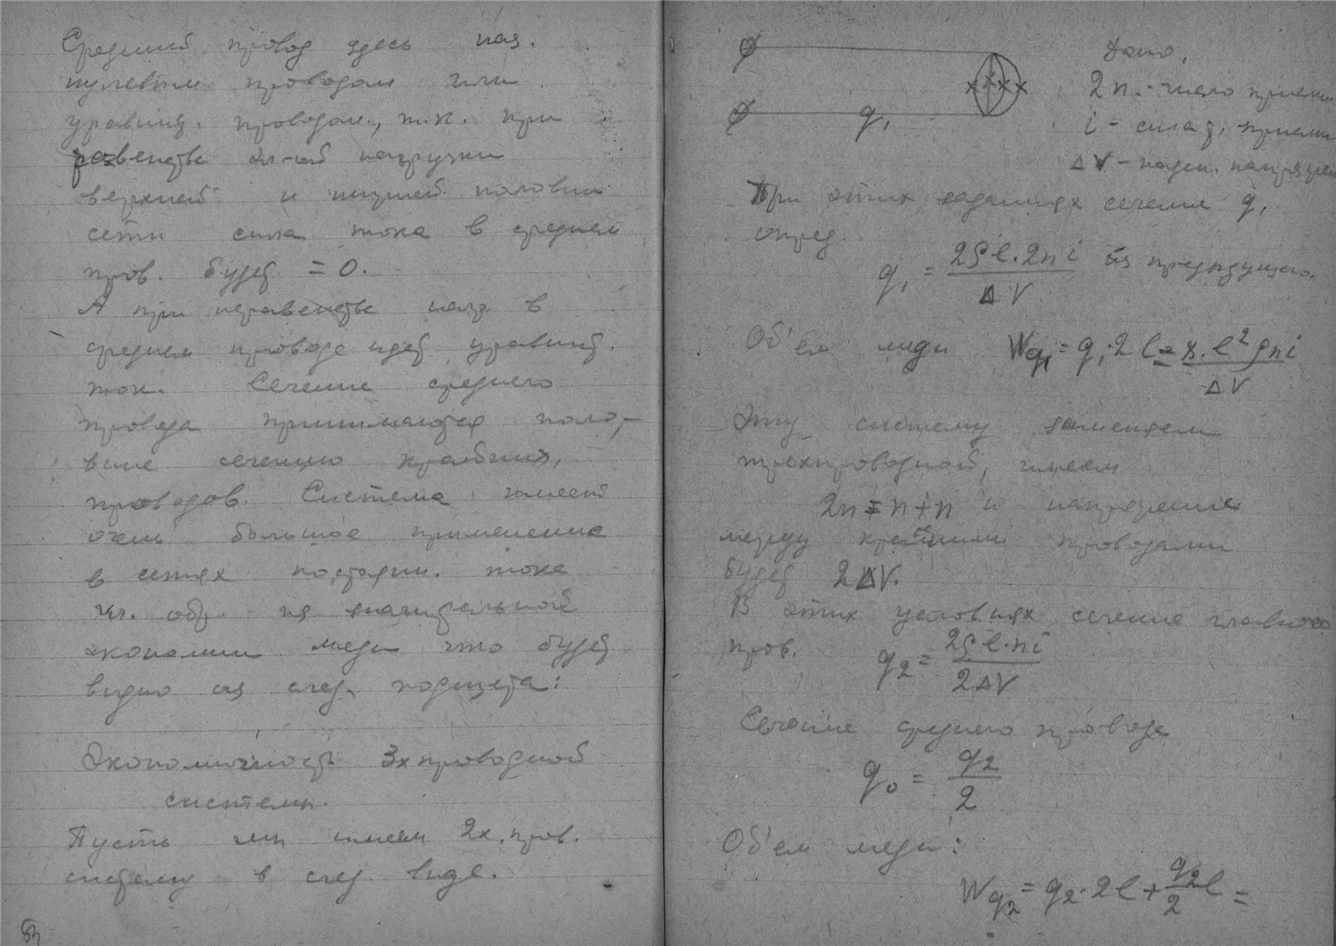 Средний провод здесь наз.
нулевым проводом или
уравнит. проводом, т.к. при
равенстве нагрузки
верхней и нижней половин
сети сила тока в среднем
пров. будет = 0.
А при неравенстве нагр в
среднем проводе идет уравнит.
ток. Сечение среднего
провода принимается поло-
вине сечению крайних,
проводов. Система имеет
очень большое применение
в сетях постоян. тока
гл. обр. из значительной
экономии меди что будет
видно из след. подсчета:
Экономичность 3х проводной
системы.
Пусть мы имеем 2х. пров.
систему в след. виде.
q₁
Дано.
2n - число приемн
i - сила т. приемн
ΔV - паден. напряжен
При этих заданиях сечение q₁
опред.
q₁ = 2ρl·2ni / ΔV из предыдущего.
Объем меди Wq₁ = q₁·2l = 8·l²ρni / ΔV
Эту систему заменяем
трехпроводной, имеем
2n = n + n и напряжение
между крайними проводами
будет 2ΔV.
В этих условиях сечение главного
пров. q₂ = 2ρl·ni / 2ΔV
Сечение среднего провода
q₀ = q₂ / 2
Объем меди:
Wq₂ = q₂·2l + q₂/2 l =